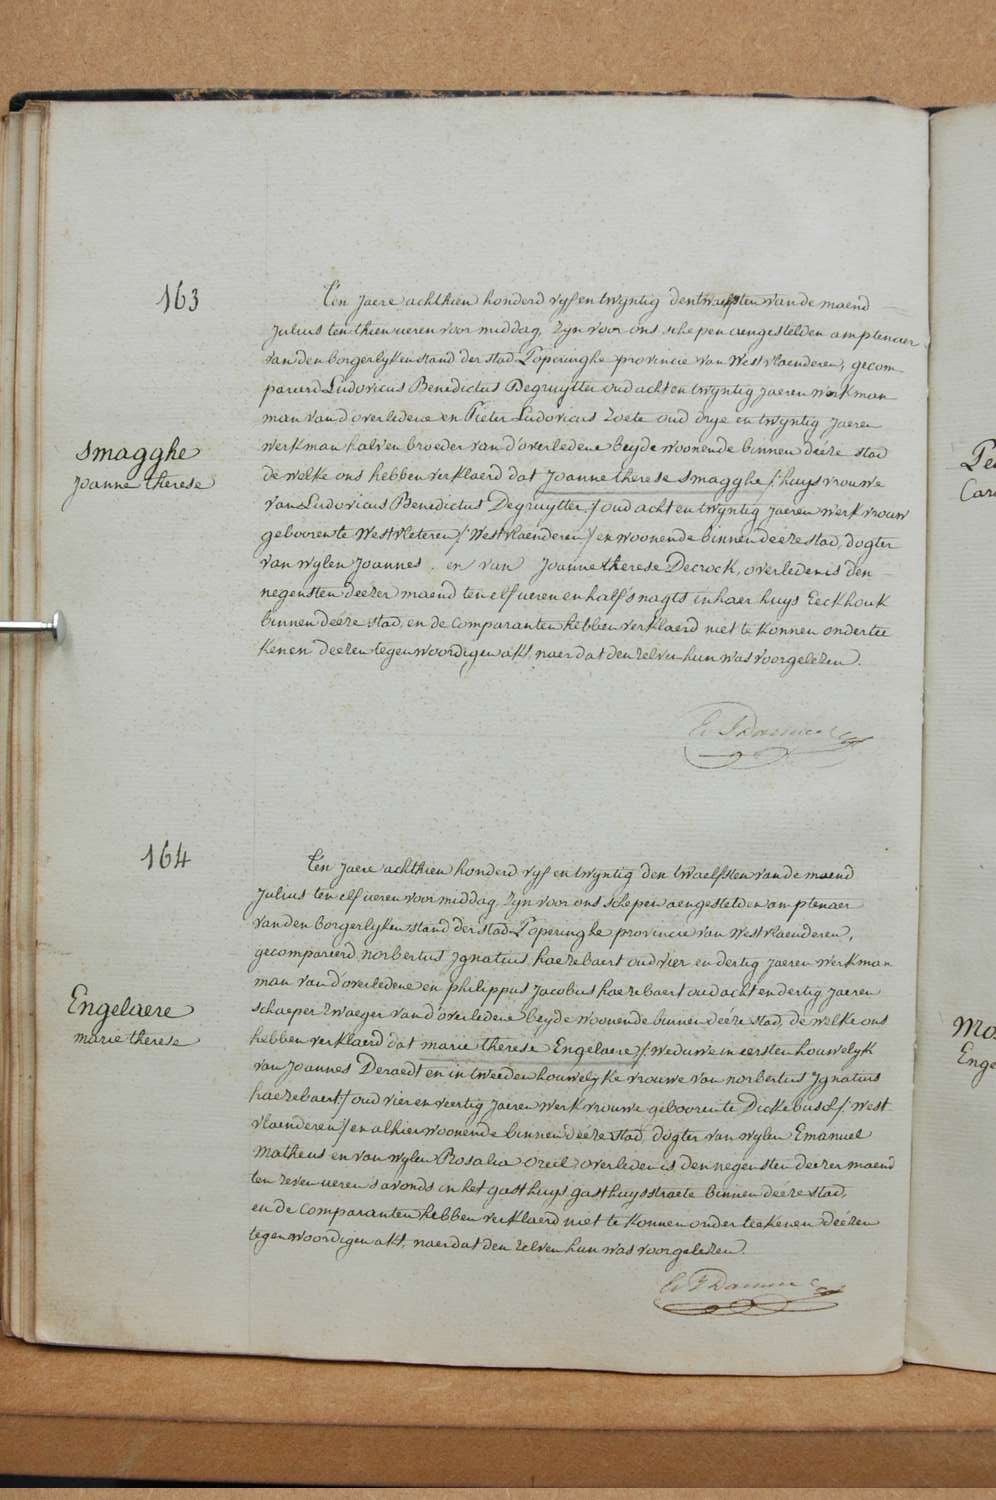 163
Smagghe
Joanne therese
T'en jaere achthien honderd vyf en twyntig den twaelfsten van de maend
Julius ten thien ueren voor middag, zyn voor ons schepen aengestelden amptenaer
van den borgerlyken stand der stad Poperinghe provincie van Westvlaenderen, gecom-
pareerd Ludovicus Benedictus Degruytter oud acht en twyntig jaeren werkman
man van d'overledene en Pieter Ludovicus Zoete oud drye en twyntig jaeren
werkman halven broeder van d'overledene beyde woonende binnen deéze stad
de welke ons hebben verklaerd dat Joanne therese Smagghe /: huysvrouwe
van Ludovicus Benedictus Degruytter :/ oud acht en twyntig jaeren werkvrouw
gebooren te Westvleteren /: Westvlaenderen :/ en woonende binnen deéze stad, dogter
van wylen Joannes en van Joanne therese Decrock, overleden is den
negensten deézer maend ten elf ueren en half s'nagts in haer huys Eeckhouk
binnen deéze stad, en de comparanten hebben verklaerd niet te konnen onder tee
kenen deézen tegenwoordigen akt, naer dat den zelven hun was voorgelezen.
164
Engelaere
marie therese
T'en jaere achthien honderd vyf en twyntig den twaelfsten van de maend
Julius ten elf ueren voor middag, zyn voor ons schepen aengestelden amptenaer
van den borgerlyken stand der stad Poperinghe provincie van Westvlaenderen,
gecompareerd norbertus Ignatius haezebaert oud vier en dertig jaeren werkman
man van d'overledene en philippus Jacobus haezebaert oud acht en dertig jaeren
schaeper zwaeger van d'overledene beyde woonende binnen deéze stad, de welke ons
hebben verklaerd dat marie therese Engelaere /: weduwe in eersten houwelyk
van Joannes Deraedt en in tweeden houwelyke vrouwe van norbertus Ignatius
haezebaert :/ oud vier en veertig jaeren werkvrouwe gebooren te Dickebusch /: West
vlaenderen :/ en alhier woonende binnen deéze stad, dogter van wylen Emanuel
Matheus en van wylen Rosalia Ozeil, overleden is den negensten deézer maend
ten zeven ueren s'avonds in het gasthuys gasthuysstraete binnen deéze stad,
en de comparanten hebben verklaerd niet te konnen onder teekenen deézen
tegenwoordigen akt, naer dat den zelven hun was voorgelezen.